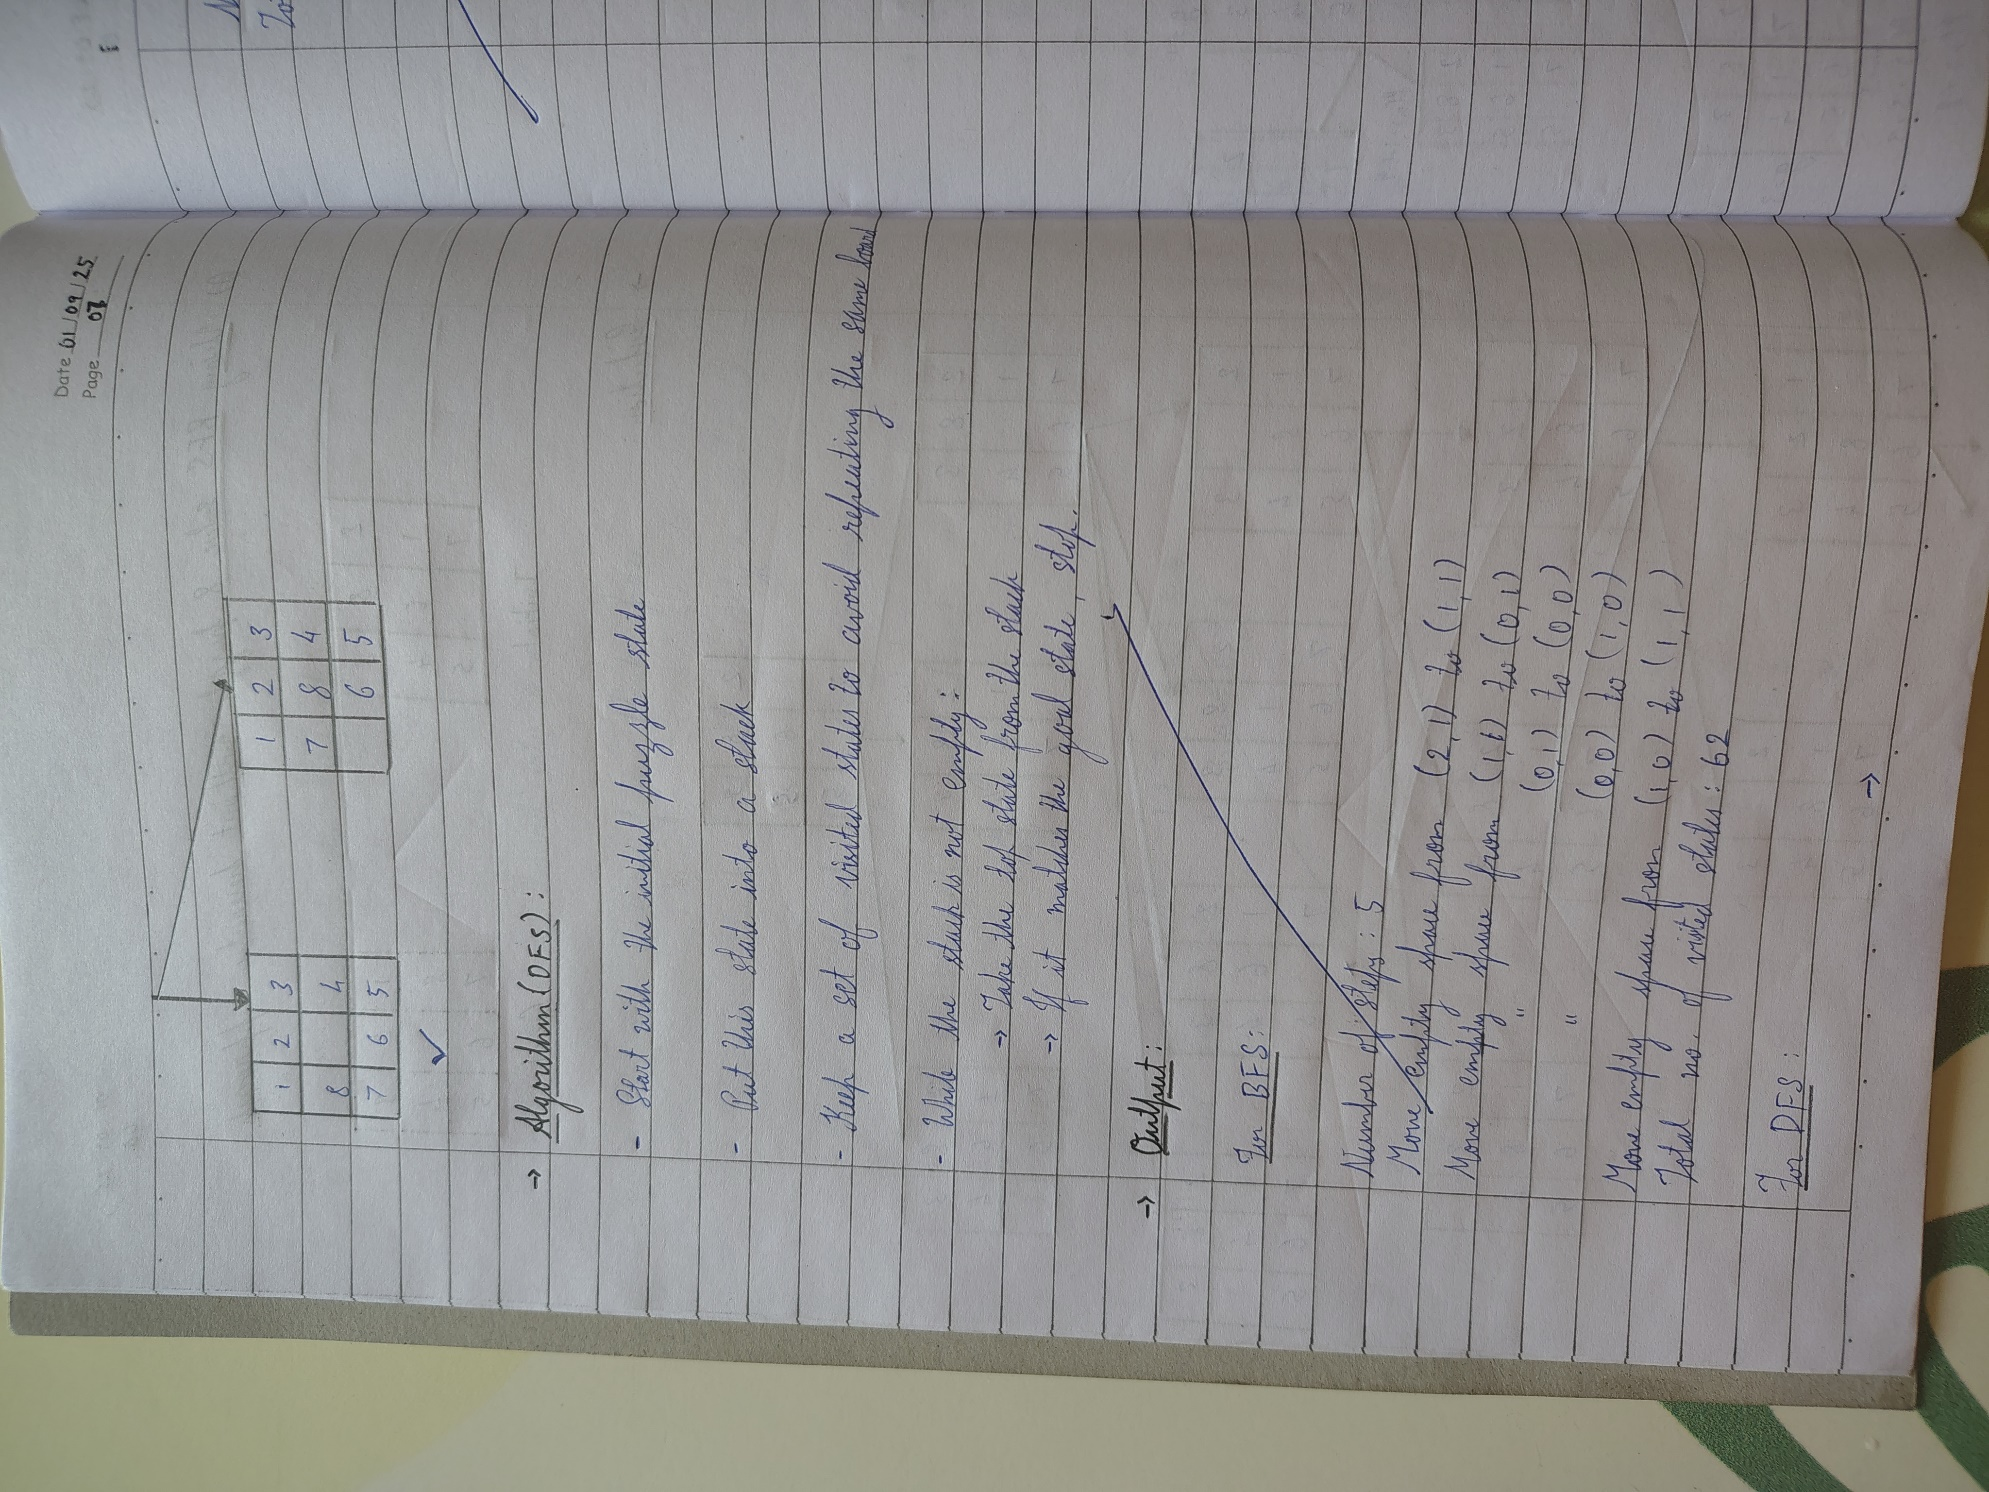 Date 01/09/25
Page 07
1 2 3
8 4
7 6 5
1 2 3
7 8 4
6 5
→ Algorithm (DFS):
- Start with the initial puzzle state
- Put this state into a stack
- Keep a set of visited states to avoid repeating the same board
- While the stack is not empty:
→ Take the top state from the stack
→ If it matches the goal state, stop.
→ Output:
For BFS:
Number of steps: 5
Move empty space from (2,1) to (1,1)
Move empty space from (1,1) to (0,1)
" (0,1) to (0,0)
" (0,0) to (1,0)
Move empty space from (1,0) to (1,1)
Total no. of visited states: 62
For DFS:
→